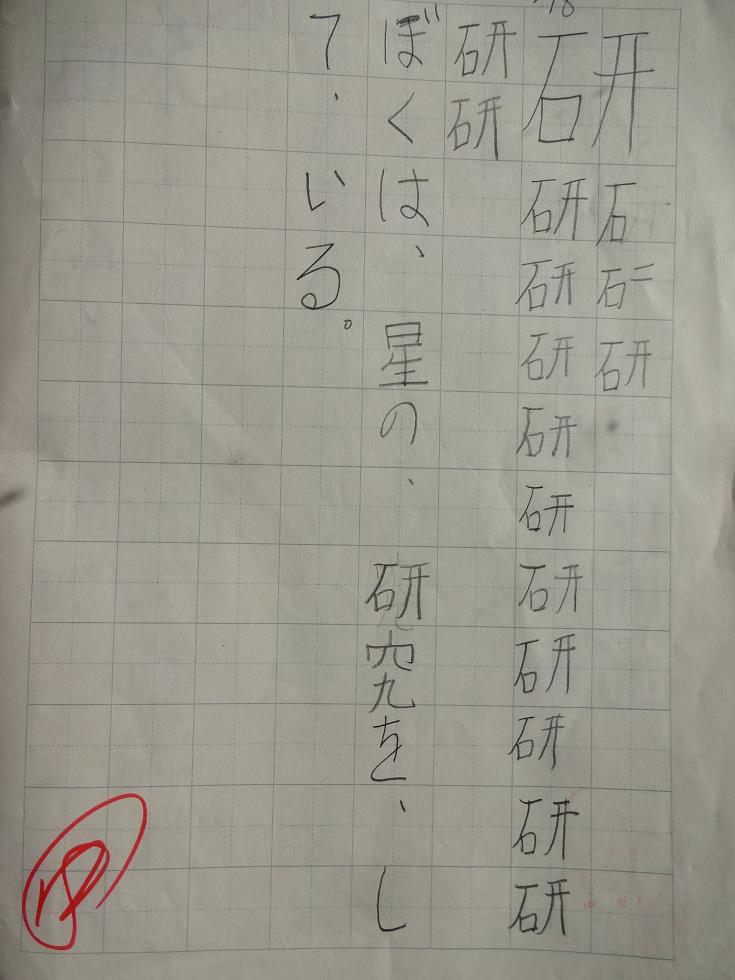 研
石石二研
研研研研研研研研研研
研研
ぼくは、星の、研究を、し
て、いる。